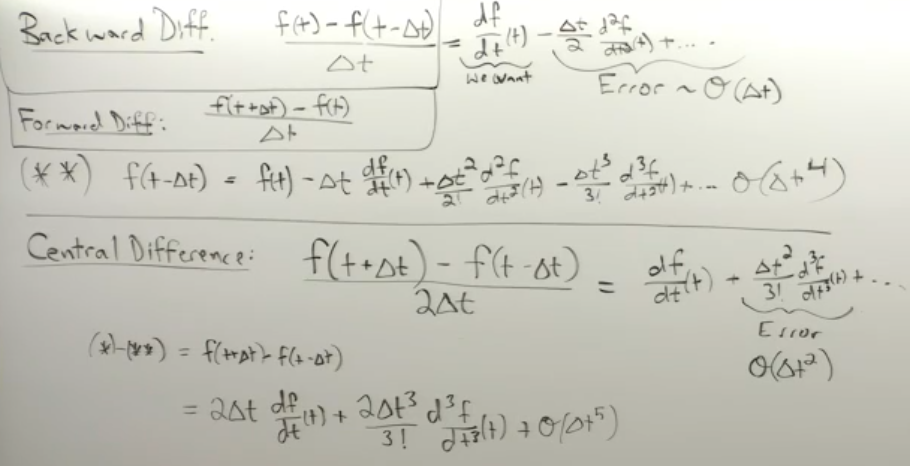 Backward Diff. (f(t) - f(t-Δt)) / Δt = df/dt (t) - Δt/2 d²f/dt² (t) + ....
We want Error ~ O(Δt)
Forward Diff: (f(t+Δt) - f(t)) / Δt
(**) f(t-Δt) = f(t) - Δt df/dt (t) + Δt²/2! d²f/dt² (t) - Δt³/3! d³f/dt³ (t) + ... O(Δt⁴)
Central Difference: (f(t+Δt) - f(t-Δt)) / 2Δt = df/dt (t) + Δt²/3! d³f/dt³ (t) + ...
Error
O(Δt²)
(*)-(**) = f(t+Δt) - f(t-Δt)
= 2Δt df/dt (t) + 2Δt³/3! d³f/dt³ (t) + O(Δt⁵)